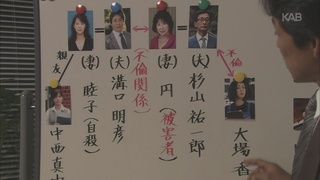 KAB
不倫
不倫関係
(夫)杉山祐一郎
(妻)円(被害者)
(夫)溝口明彦
(妻)睦子(自殺)
親友
大場香
中西真由